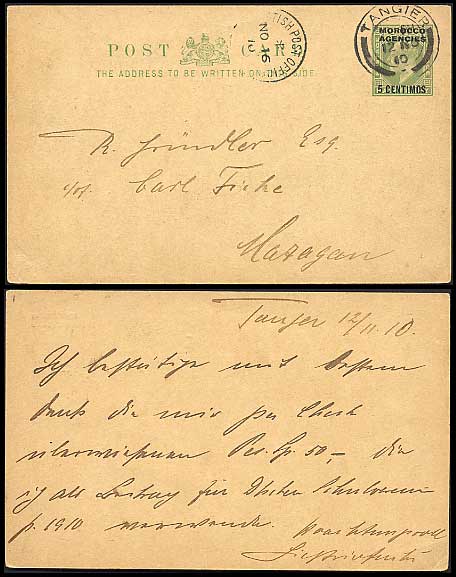 POST CARD
THE ADDRESS TO BE WRITTEN ON THIS SIDE
BRITISH POST OFFICE
NO 16
10
TANGIER
12 NO
10
MOROCCO
AGENCIES
5 CENTIMOS
R. Gründler Esq.
c/of. Carl Ficke
Mazagan
Tanger 12/11.10.
Ich bestätige mit bestem
Dank die mir per Check
überwiesenen Pes. Sp. 50,– die
ich als Beitrag für Dtschen Schulverein
p. 1910 verwende.